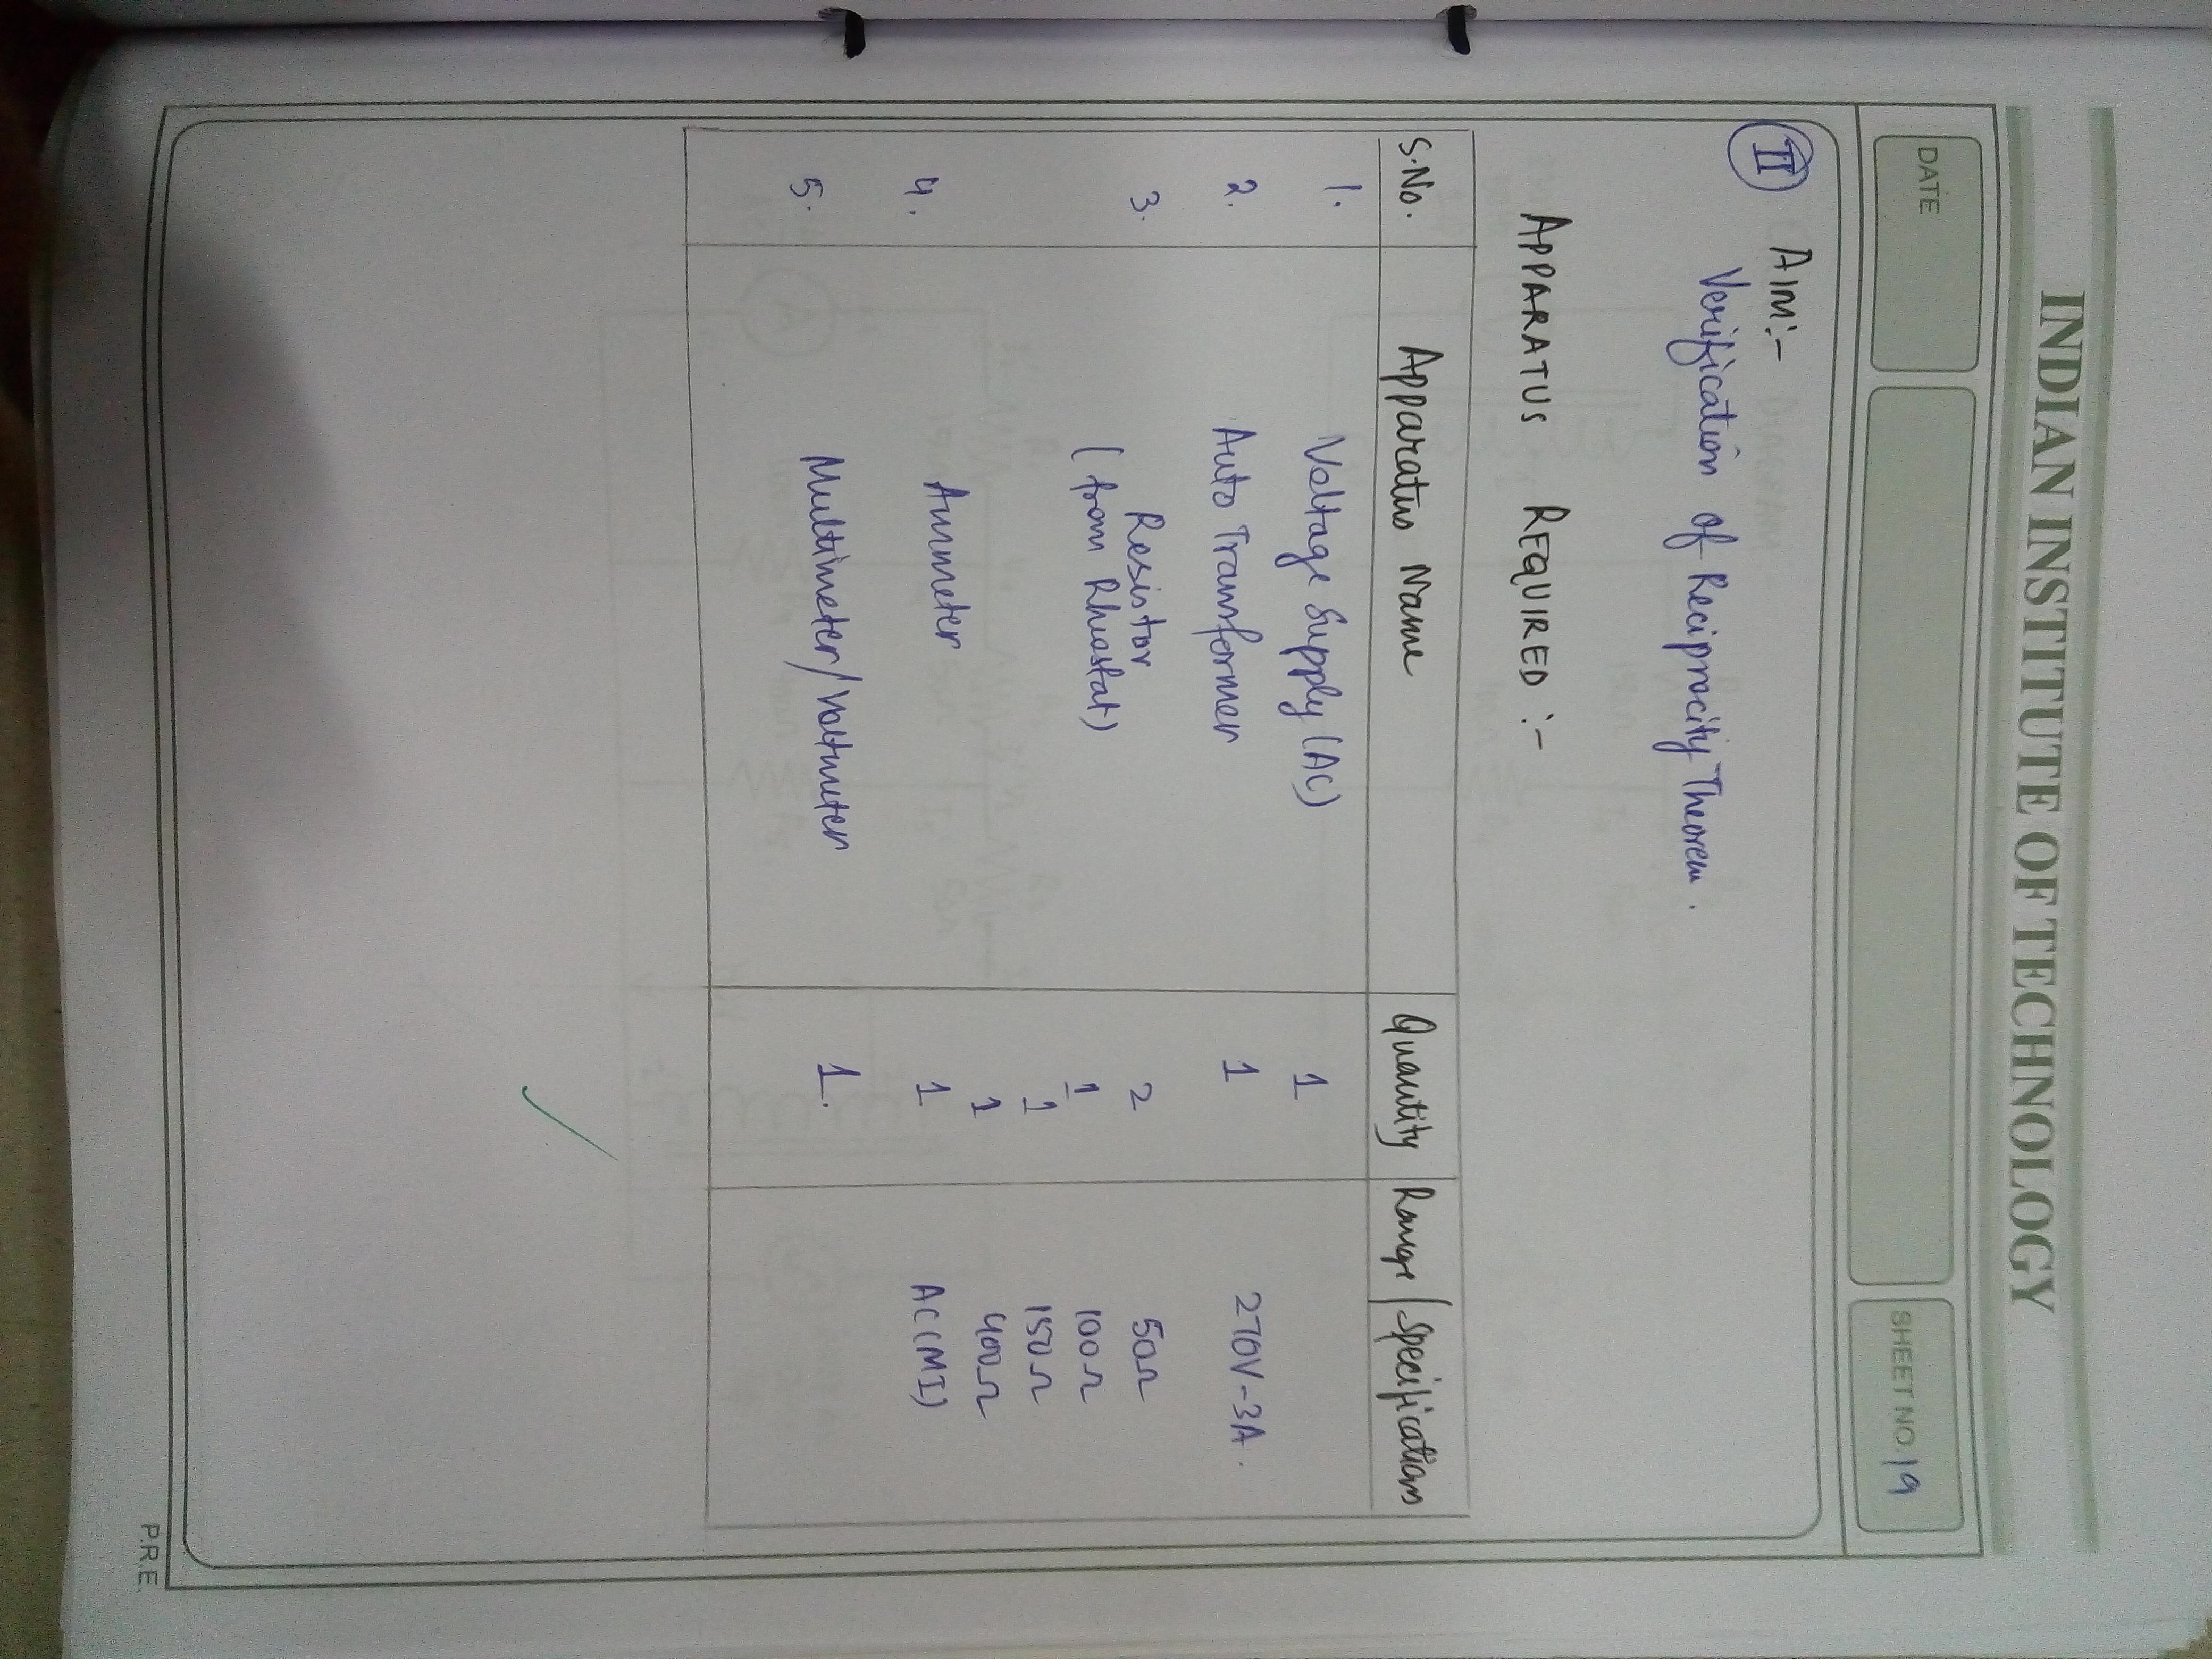 INDIAN INSTITUTE OF TECHNOLOGY
DATE
SHEET NO. 19
II AIM:-
Verification of Reciprocity Theorem.
APPARATUS REQUIRED :-
S.No. Apparatus Name Quantity Range/Specifications
1. Voltage Supply (AC) 1
2. Auto Transformer 1 270V-3A.
3. Resistor 2 50Ω
(from Rheostat) 1 100Ω
1 150Ω
1 400Ω
4. Ammeter 1 AC(MI)
5. Multimeter/Voltmeter 1.
P.R.E.